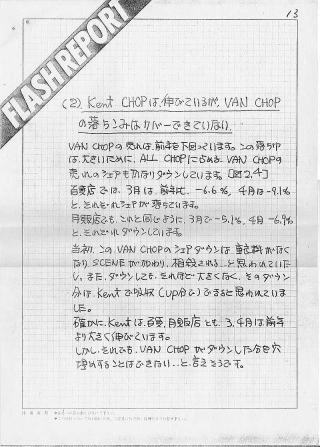 FLASH REPORT
13
(2) Kent CHOPは、伸びているが、VAN CHOP
の落ちこみはカバーできていない
VAN CHOPの売れは、前年を下回っています。この落ち巾
は、大きいために、ALL CHOPに占める、VAN CHOPの
売れのシェアもかなりダウンしています。[図2.4]
百貨店では、3月は、前年比、-6.6%、4月は-9.1%
と、それぞれシェアが落ちています。
月販店でも、これと同じように、3月で-5.1%、4月-6.9%
と、それぞれダウンしています。
当初、このVAN CHOPのシェアダウンは、重衣料がなく
なりSCENEがかわり、相殺される…と思われていた
し、また、ダウンしても、それほど大きくなく、そのダウン
分は、Kentで吸収(up分で)できると思われていま
した。
確かに、Kentは、百貨、月販店とも、3、4月は前年
より大きく伸びています。
しかし、それでも、VAN CHOPがダウンした分を穴
埋めすることはできない…と言えそうです。